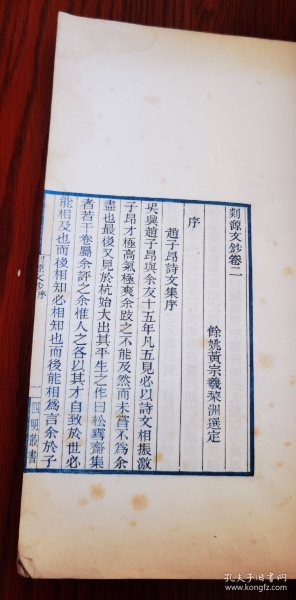 剡源文鈔卷二
餘姚黃宗羲棃洲選定
序
趙子昂詩文集序
吳興趙子昂與余友十五年凡五見必以詩文相振激
子昂才極高氣極爽余跂之不能及然而未嘗不為余
盡也最後又見於杭始大出其平生之作曰松雪齋集
者若干卷屬余評之余惟人之各以其才自致於世必
能相及也而後相知必相知也而後能相為言余於子
四明叢書
孔夫子旧书网